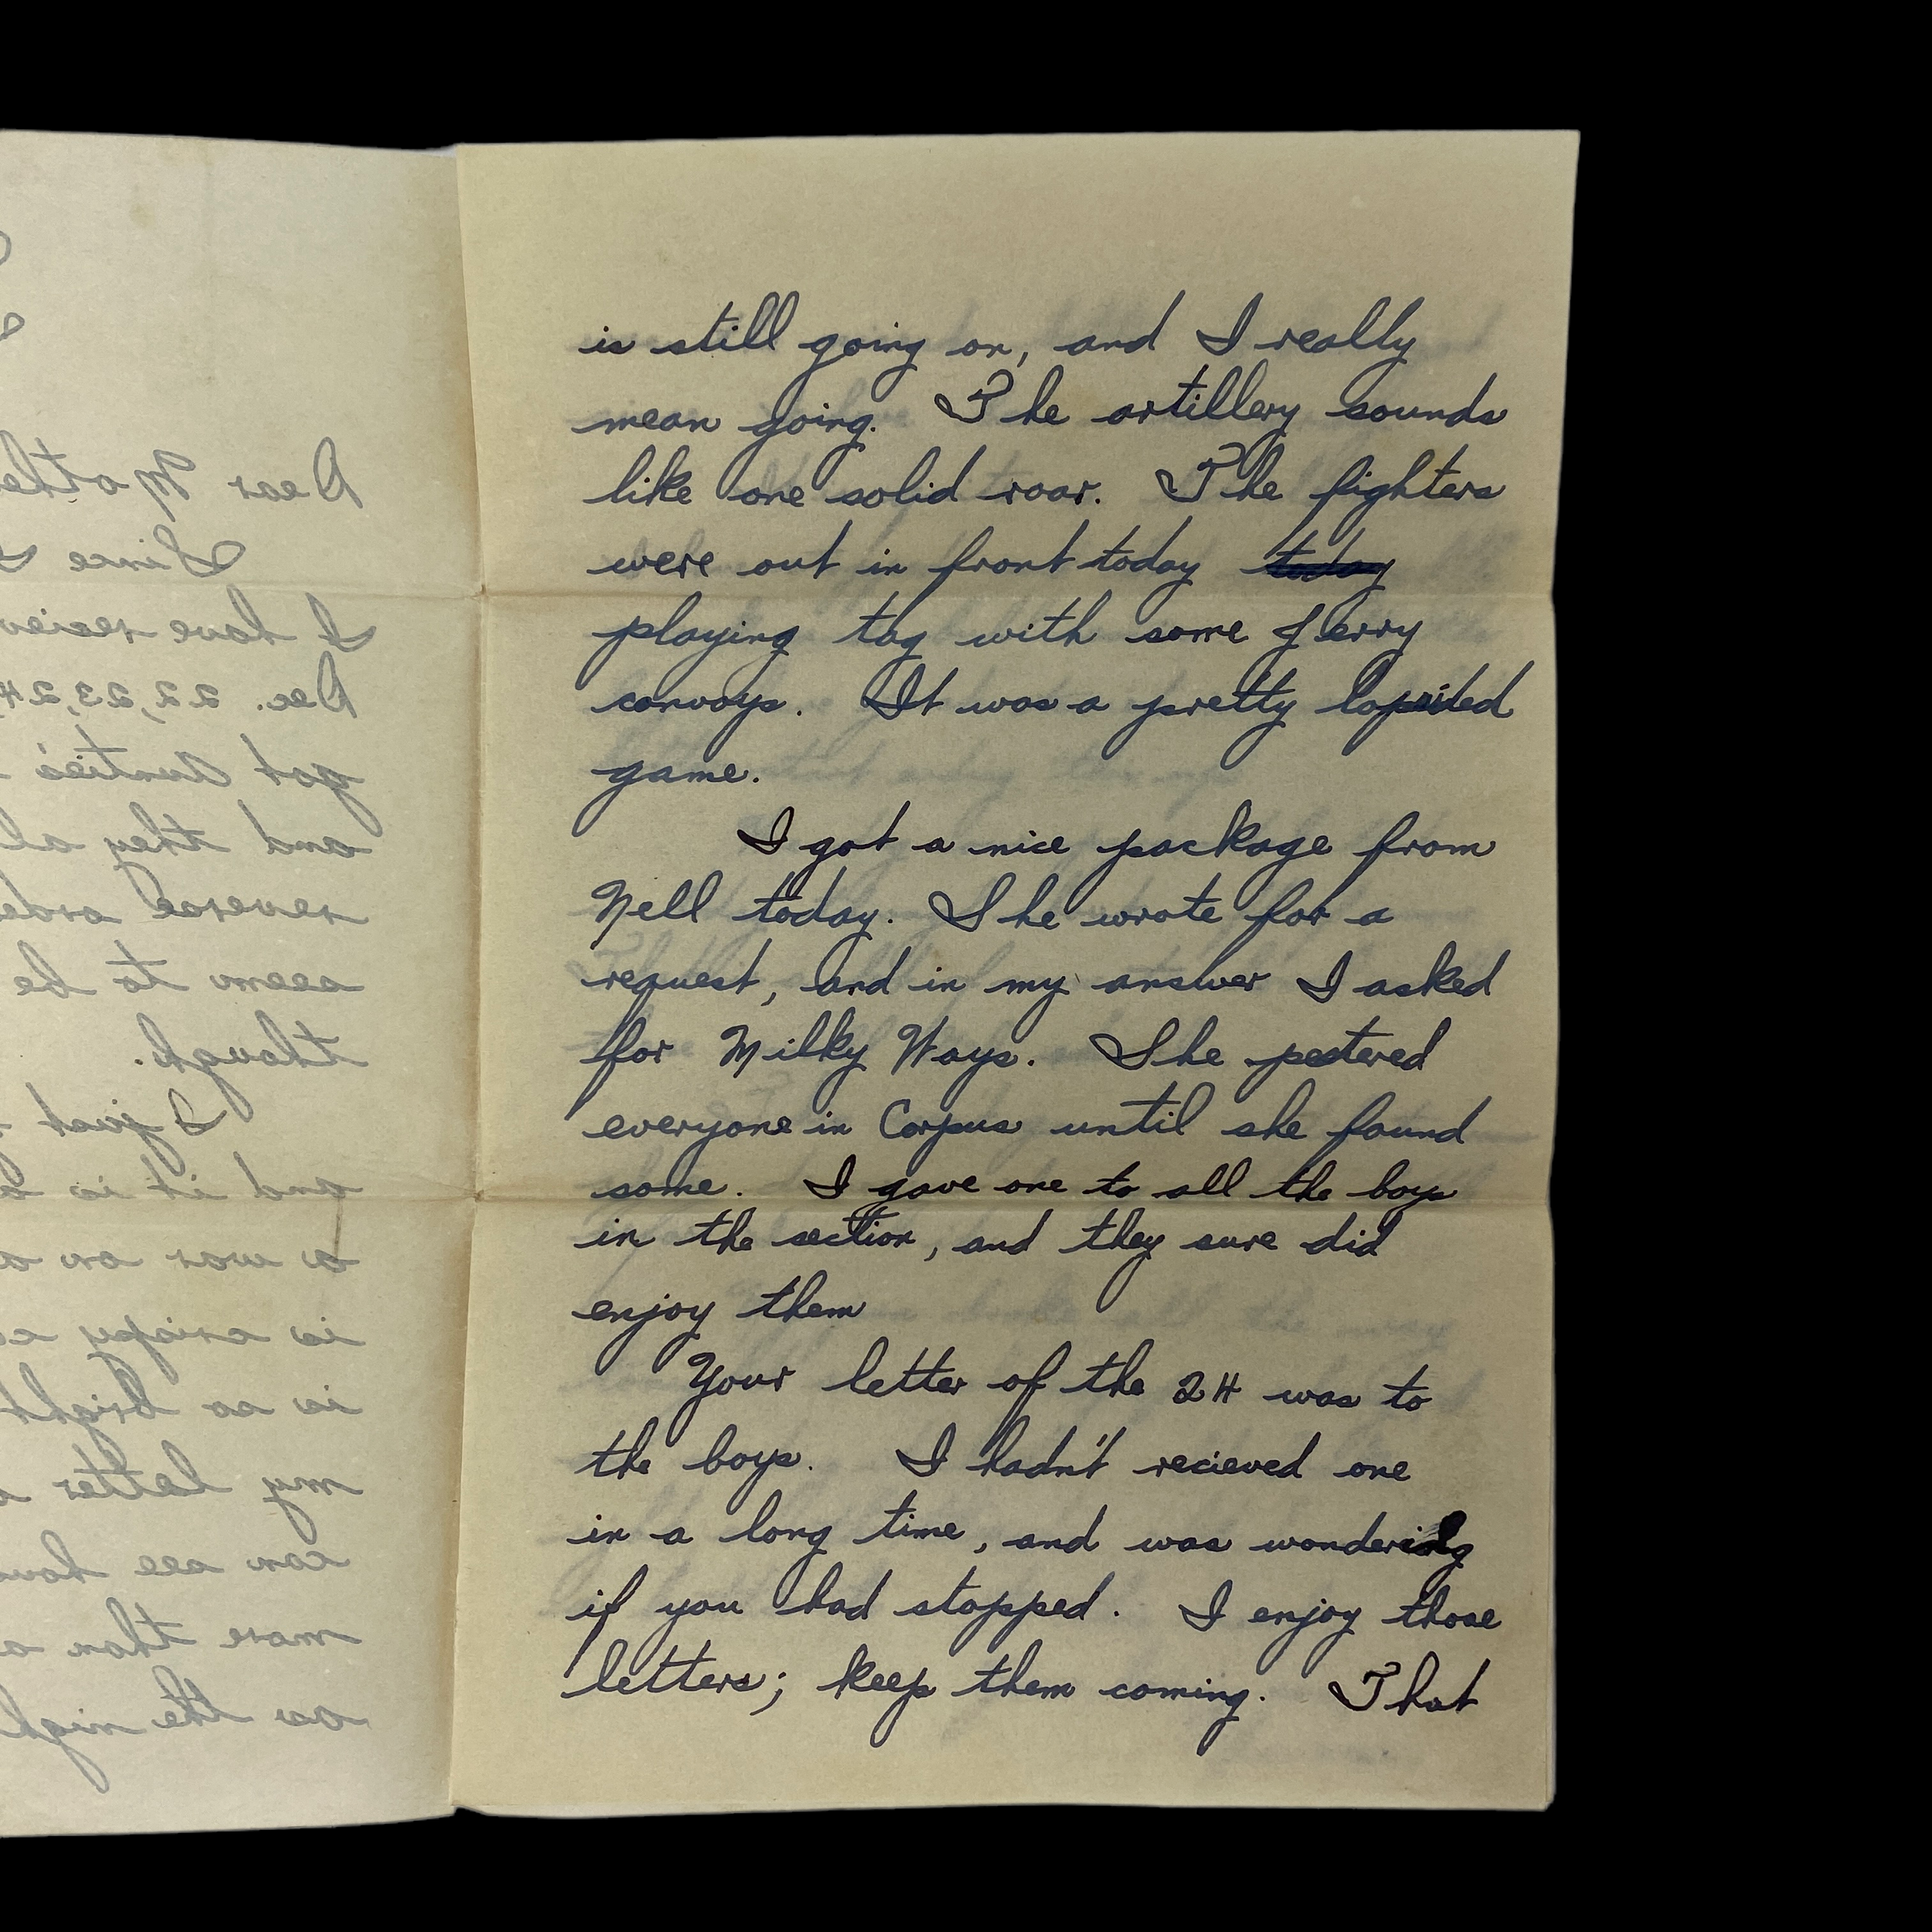 is still going on, and I really
mean going. The artillery sounds
like one solid roar. The fighters
were out in front today today
playing tag with some Jerry
convoys. It was a pretty lopsided
game.
I got a nice package from
Nell today. She wrote for a
request, and in my answer I asked
for Milky Ways. She pestered
everyone in Corpus until she found
some. I gave one to all the boys
in the section, and they sure did
enjoy them
Your letter of the 24 was to
the boys. I hadn't recieved one
in a long time, and was wondering
if you had stopped. I enjoy those
letters; keep them coming. That
Dear
Since I
I have
Dec. 22, 23, 24
got Auntie's
and they
reverse
seems to be
though.
I just
and it is
a war on
is
is as bright
my letter
can see
more than
as the